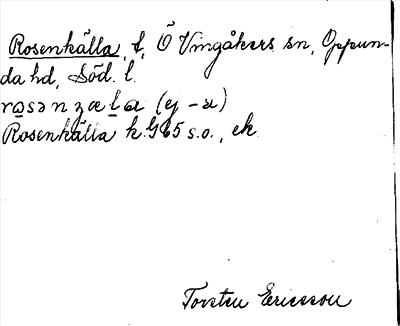 Rosenkälla, t, Ö Vingåkers sn, Oppun-
da hd, Söd. l.
Rosenkälla k. G65 s.o., ek.
Torsten Ericsson